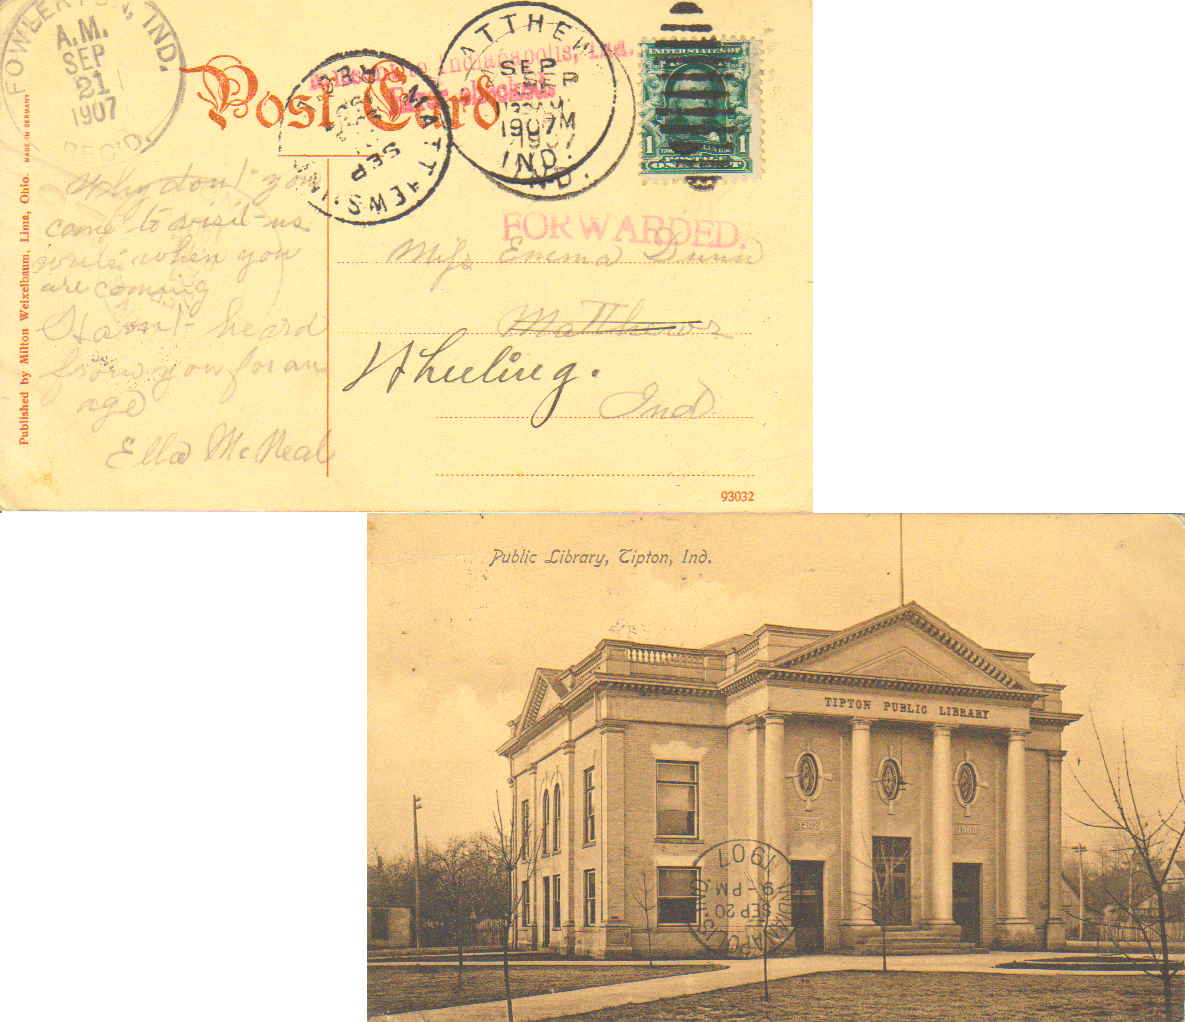 FOWLERTON, IND.
A.M.
SEP
21
1907
REC'D.
MADE IN GERMANY
Published by Milton Weixelbaum, Lima, Ohio.
Post Card
Indianapolis, Ind.
MATTHEWS
SEP
1907
IND.
MATTHEWS, IND.
REC'D
SEP
UNITED STATES OF
1 1
POSTAGE
ONE CENT
FORWARDED.
Why don't you
come to visit us
write when you
are coming
Haont heard
from you for an
age
Ella McNeal
Miss Emma Dunn
Matthews
Wheeling.
Ind
93032
Public Library, Tipton, Ind.
TIPTON PUBLIC LIBRARY
INDIANAPOLIS, IND.
SEP 20
9-PM
1907